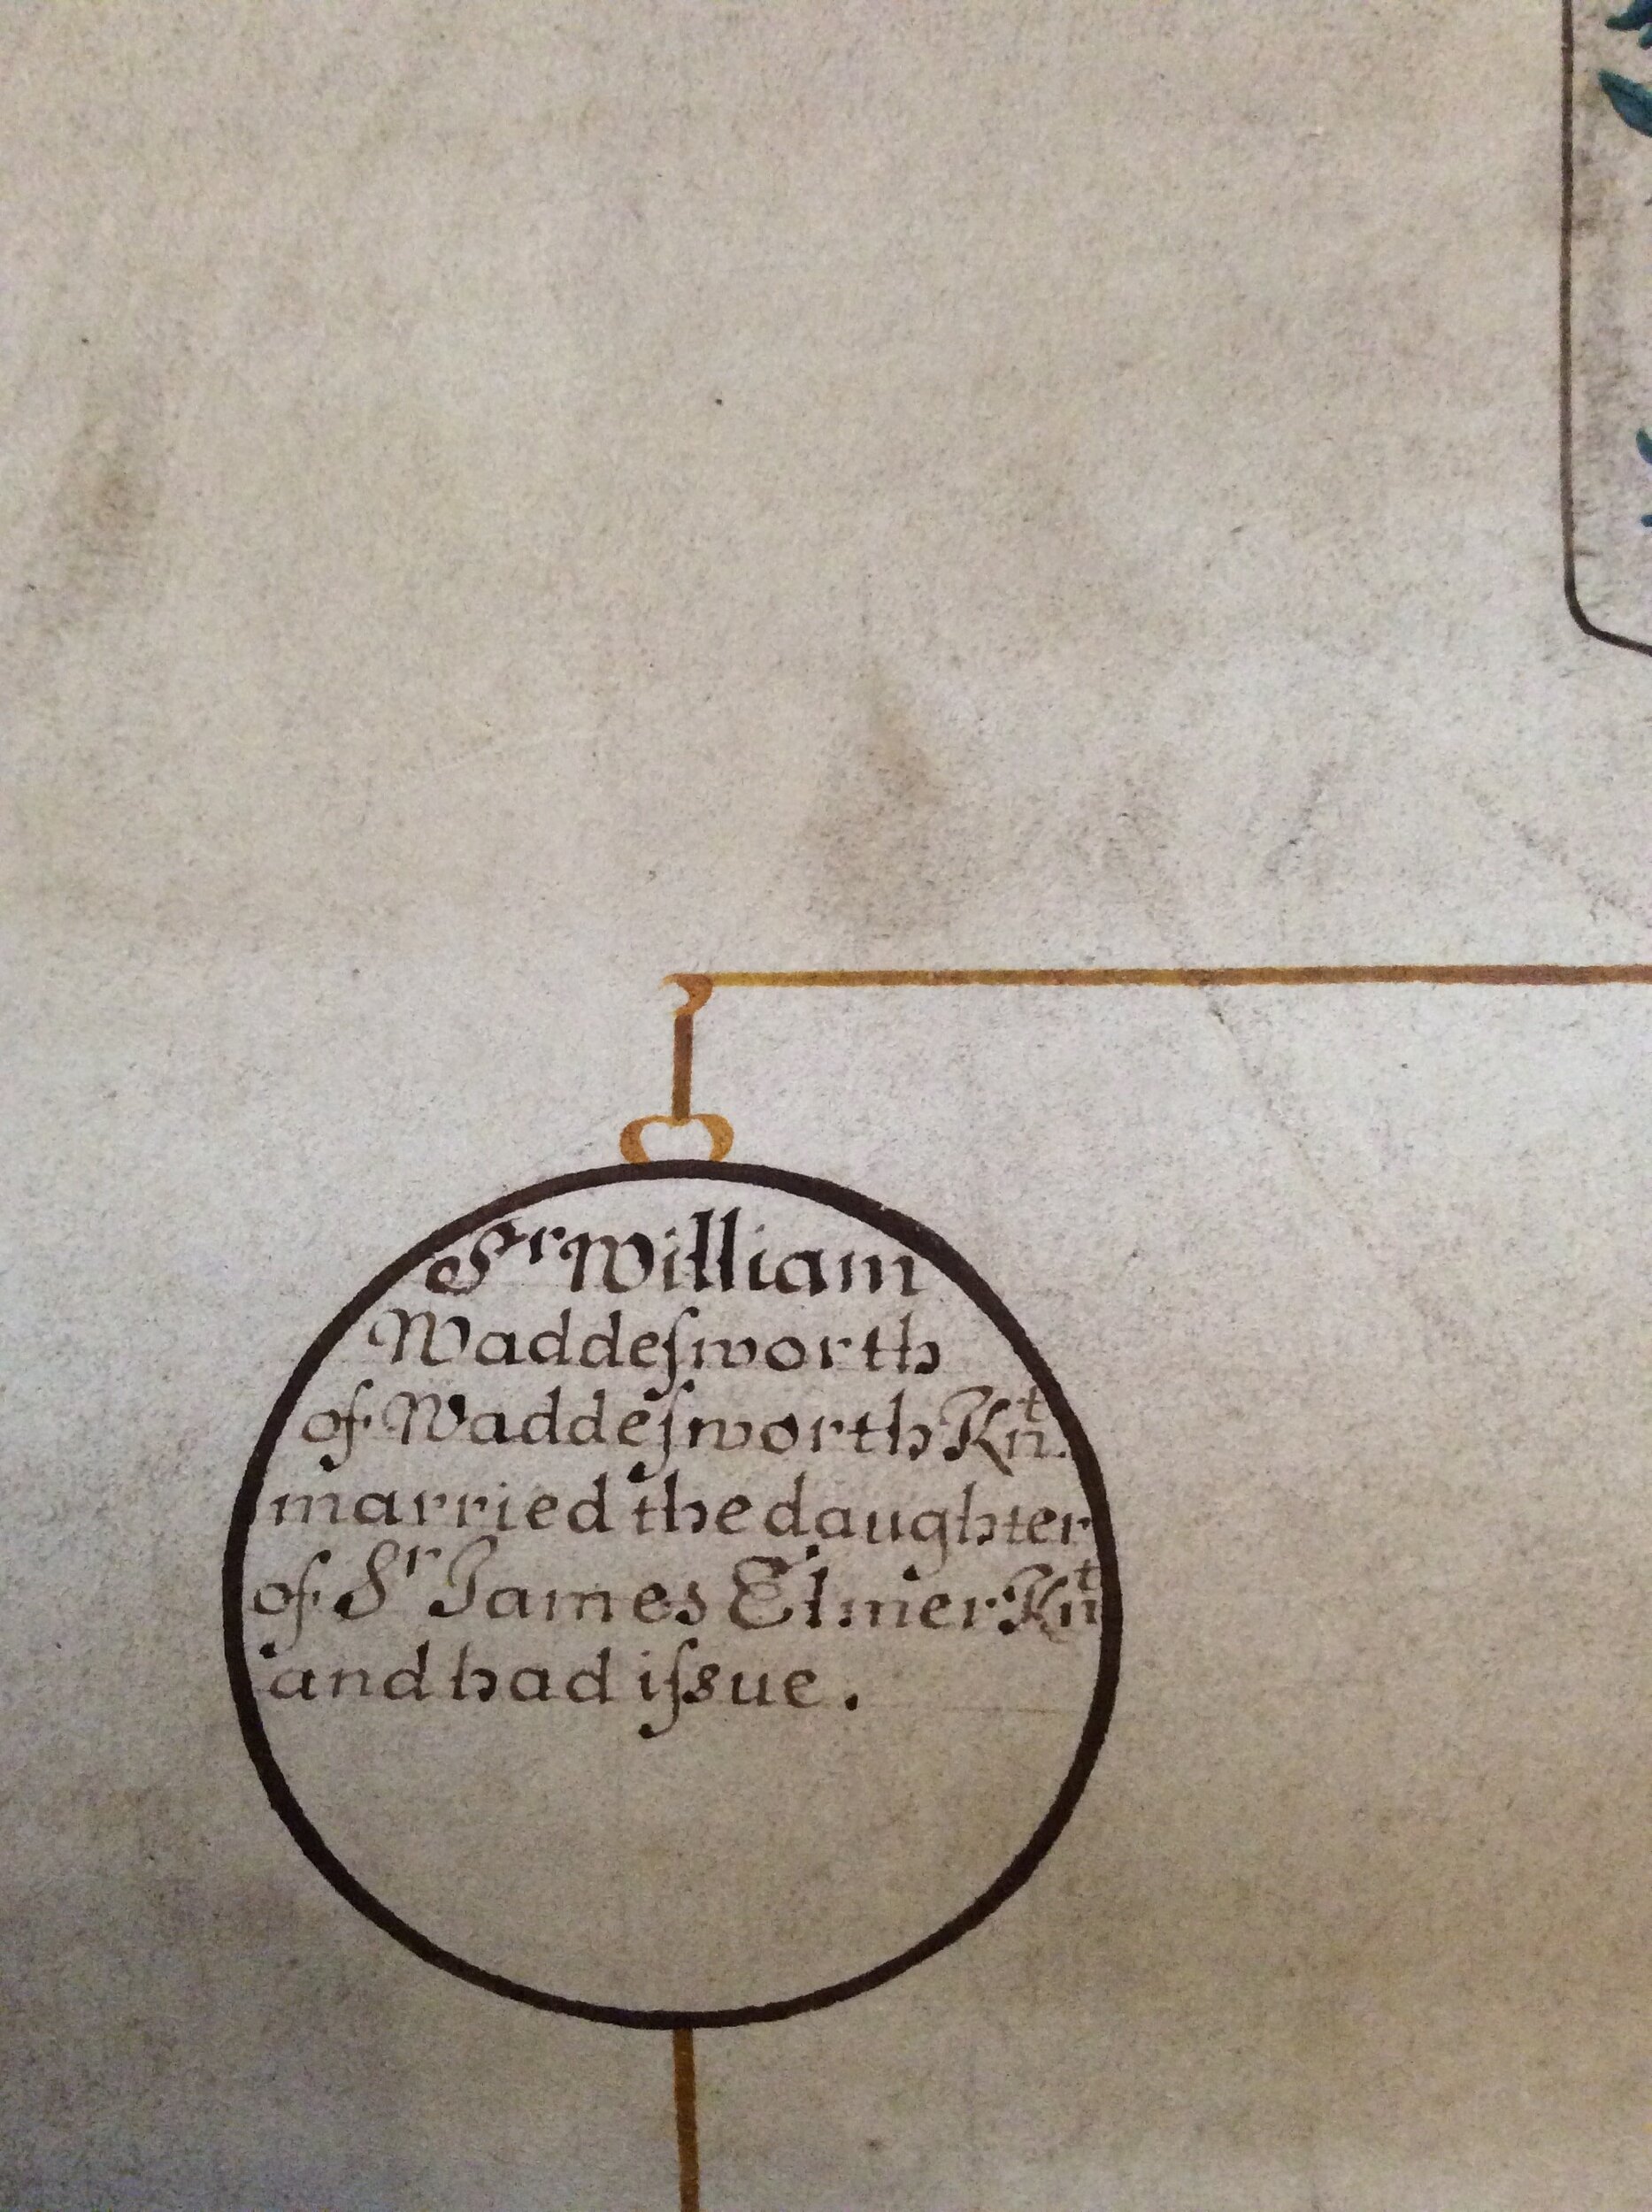 Sr William
Waddeſworth
of Waddeſworth Knt.
married the daughter
of Sr James Elmer Knt
and had iſsue.